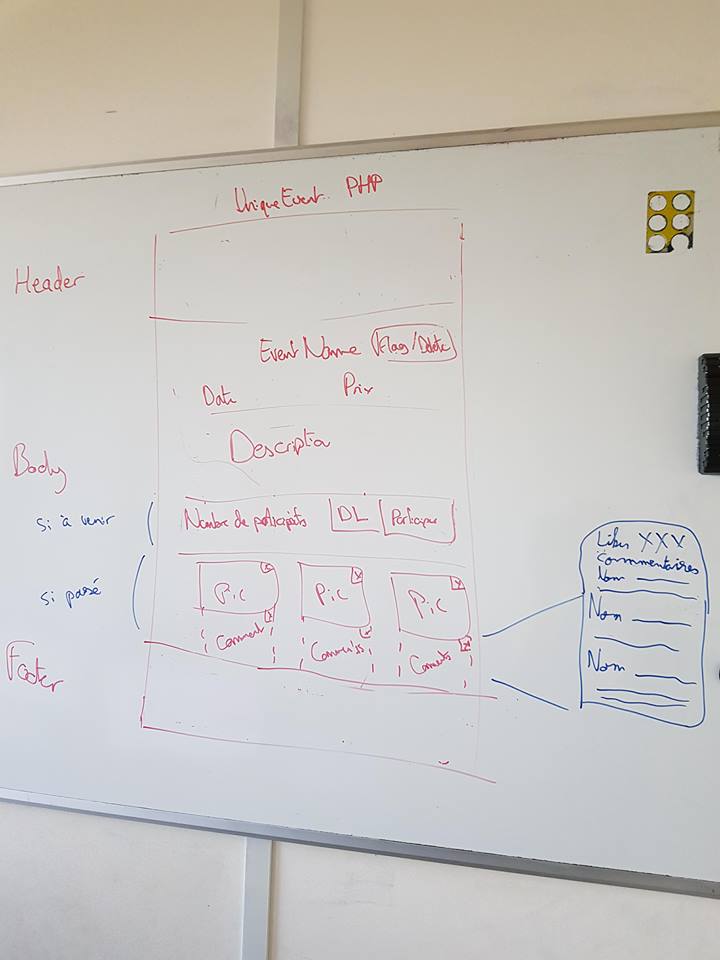 Unique Event PHP
Header
Event Name Flag/Delete
Date Prix
Descriptio
Body
si à venir
Nombre de participants DL Participer
si passé
Pic x Pic x Pic x
Comments x Comments x Comments x
Footer
Likes XXX
Commentaires
Nom
Nom
Nom